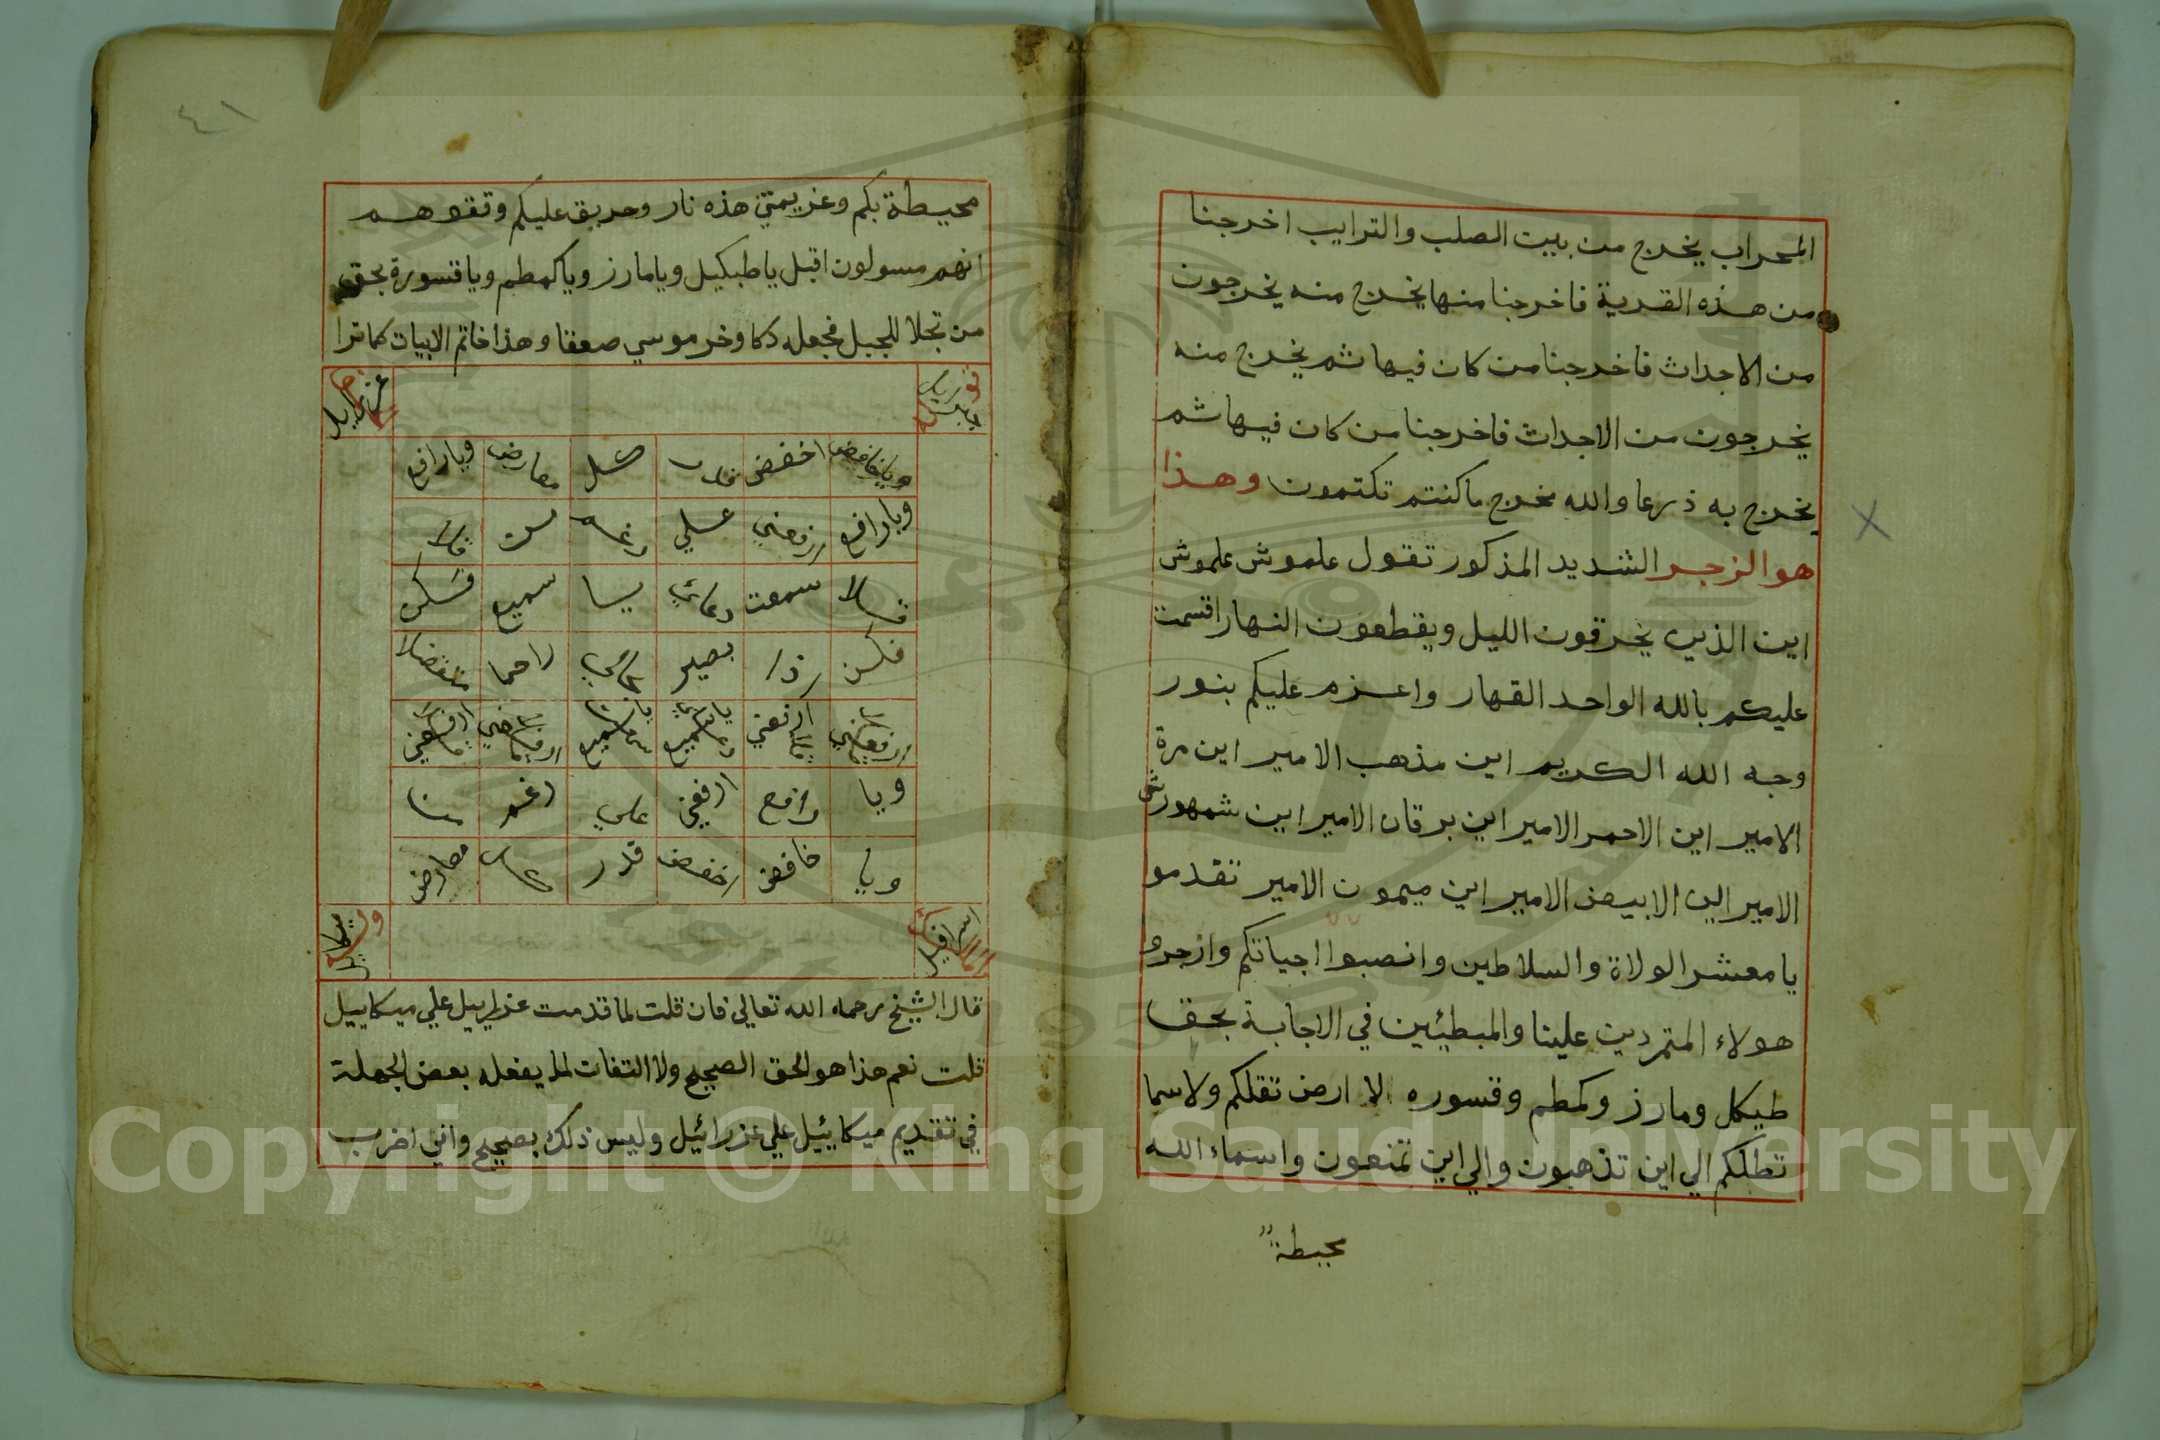 المحراب يخرج من بيت الصلب والترايب اخرجنا
من هذه القرية فاخرجنا منها يخرج منه يخرجون
من الاجداث فاخرجنا من كان فيها ثم يخرج منه
يخرجون من الاجداث فاخرجنا من كان فيها ثم
يخرج به ذرعا والله مخرج ماكنتم تكتمون وهذا
هو الزجر الشديد المذكور تقول علموش علموش
اين الذين يخرقون الليل ويقطعون النهار اقسمت
عليكم بالله الواحد القهار واعزم عليكم بنور
وجه الله الكريم اين مذهب الامير اين مرة
الامير اين الاحمر الامير اين برقان الامير اين شمهورش
الامير اين الابيض الامير اين ميمون الامير تقدمو
يا معشر الولاة والسلاطين وانصبوا اجياتكم وازجرو
هولاء المتمردين علينا والمبطئين في الاجابة بحق
طيكل ومارز وكمطم وقسوره لا ارض تقلكم ولاسما
تظلكم الي اين تذهبون والي اين تمنعون واسماء الله
محيطة
٤١
محيطة بكم وعزيمتي هذه نار وحريق عليكم وقفوهم
انهم مسولون اقبل يا طبكيل ويا مارز ويا كمطم ويا قسورة بحق
من تجلا للجبل فجعله دكا وخر موسي صعقا وهذا خاتم الابيات كما ترا
عزرايل
اخفض معارض ويارافع
ويارافع علي
سمعت دعائي يا سميع فسكن
فكن بصير راحما متفضلا
ارفعني
ويا رافع ارفعني علي
ويا خافض اخفض قدر كل معارض
اسرافيل ميكاييل
قال الشيخ رحمه الله تعالي فان قلت لما قدمت عزراييل علي ميكاييل
قلت نعم هذا هو الحق الصحيح ولا التفات لما يفعله بعض الجهلة
في تقديم ميكاييل علي عزرائيل وليس ذلك بصحيح واني اضرب
Copyright © King Saud University
1957